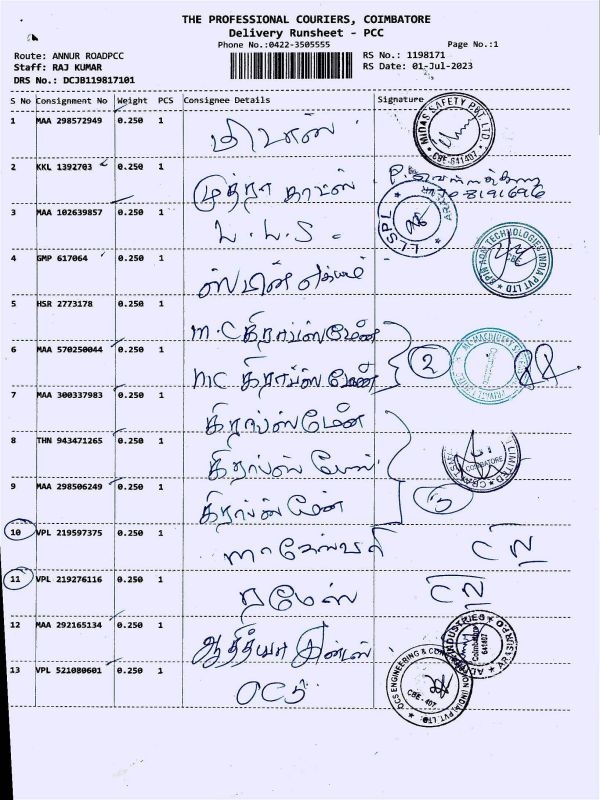 THE PROFESSIONAL COURIERS, COIMBATORE
Delivery Runsheet - PCC
Phone No.:0422-3505555 Page No.:1
Route: ANNUR ROADPCC RS No.: 1198171
Staff: RAJ KUMAR RS Date: 01-Jul-2023
DRS No.: DCJB119817101
S No Consignment No Weight PCS Consignee Details Signature
1 MAA 298572949 0.250 1
MIDAS SAFETY PVT. LTD CBE-641407
2 KKL 1392703 0.250 1 முத்ரா
3 MAA 102639857 0.250 1 L.L.S.
LLSPL
4 GMP 617064 0.250 1 ஸ்பின்
TECHNOLOGIES INDIA PVT LTD CBE
5 HSR 2773178 0.250 1 M.C கிராப்ஸ்மேன்
6 MAA 570250044 0.250 1 MC கிராப்ஸ்மேன் 2
7 MAA 300337983 0.250 1 கிராப்ஸ்மேன்
8 THN 943471265 0.250 1
COIMBATORE LIMITED
9 MAA 298506249 0.250 1 கிராப்ஸ்மேன் 3
10 VPL 219597375 0.250 1 மகேஸ்வரி CN
11 VPL 219276116 0.250 1 ரமேஸ் CN
12 MAA 292165134 0.250 1 ஆதித்யா இன்டஸ்
INDUSTRIES Coimbatore 641407
13 VPL 521080601 0.250 1 OCS
OCS ENGINEERING & CONSTRUCTION (INDIA) PVT. LTD. CBE - 407